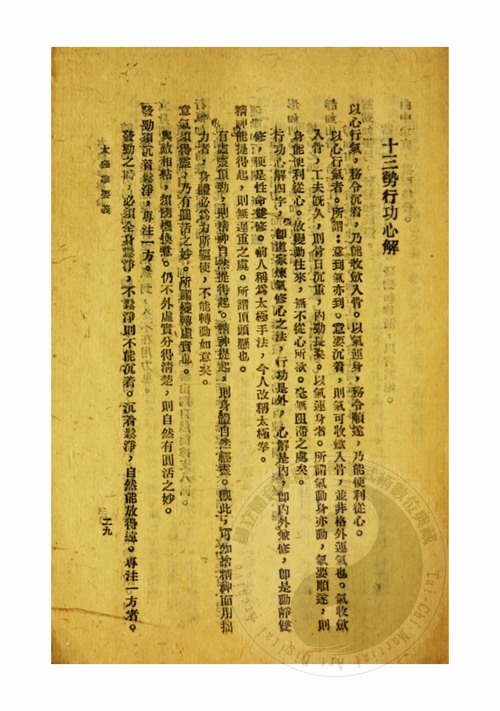 十三勢行功心解
以心行氣，務令沉着，乃能收斂入骨。以氣運身，務令順遂，乃能便利從心。
以心行氣者。所謂：意到氣亦到。意要沉着，則氣可收斂入骨，並非格外運氣也。氣收斂
入骨，工夫既久，則骨日沉重，內勁長矣。以氣運身者。所謂氣動身亦動，氣要順遂，則
身能便利從心。故變動往來，無不從心所欲。毫無阻滯之處矣。
行功心解四字，卽道家煉氣修心之法，行功是外，心解是內，卽內外兼修，卽是動靜雙
修，便是性命雙修。前人稱爲太極手法，今人改稱太極拳。
精神能提得起，則無遲重之虞。所謂頂頭懸也。
有虛靈頂勁，則精神自然提得起。精神提起，則身體自然輕靈。觀此，可知捨精神而用拙
力者，身體必爲力所驅使，不能轉動如意矣。
意氣須得靈，乃有圓活之妙。所謂變轉虛實也。
與敵相粘，須隨機換意。仍不外虛實分得清楚，則自然有圓活之妙。
發勁須沉着鬆淨，專注一方。
發勁之時，必須全身鬆淨，不鬆淨則不能沉着。沉着鬆淨，自然能放得遠。專注一方者。
太極拳要義
二九